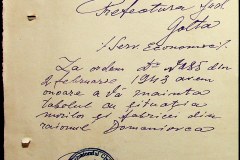 Prefectura Jud.
Golta
/Serv. Economic/
La ordin Nr. 285 din
2 februarie, 1943 avem
onoare a Vă înainta
tabloul cu situația
morilor și fabricei din
raionul Domaniovca